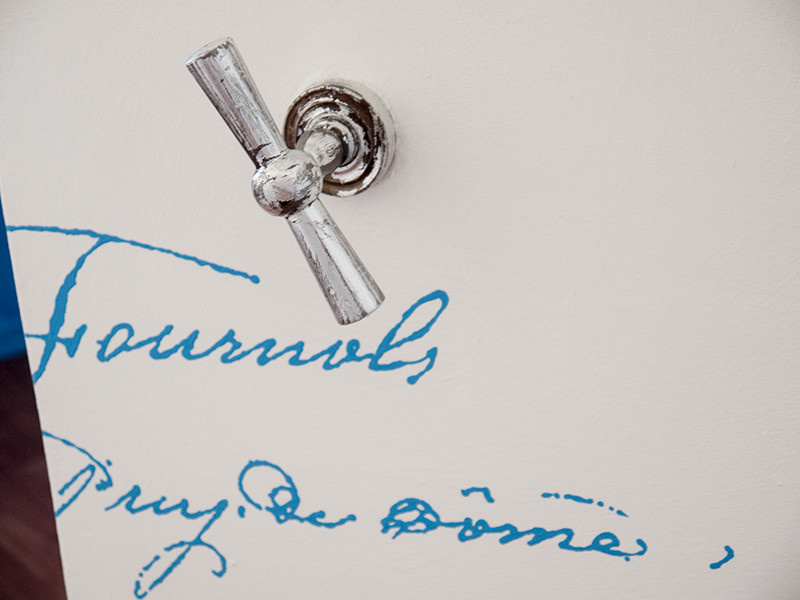 Fournols
Puy. De Dôme ,